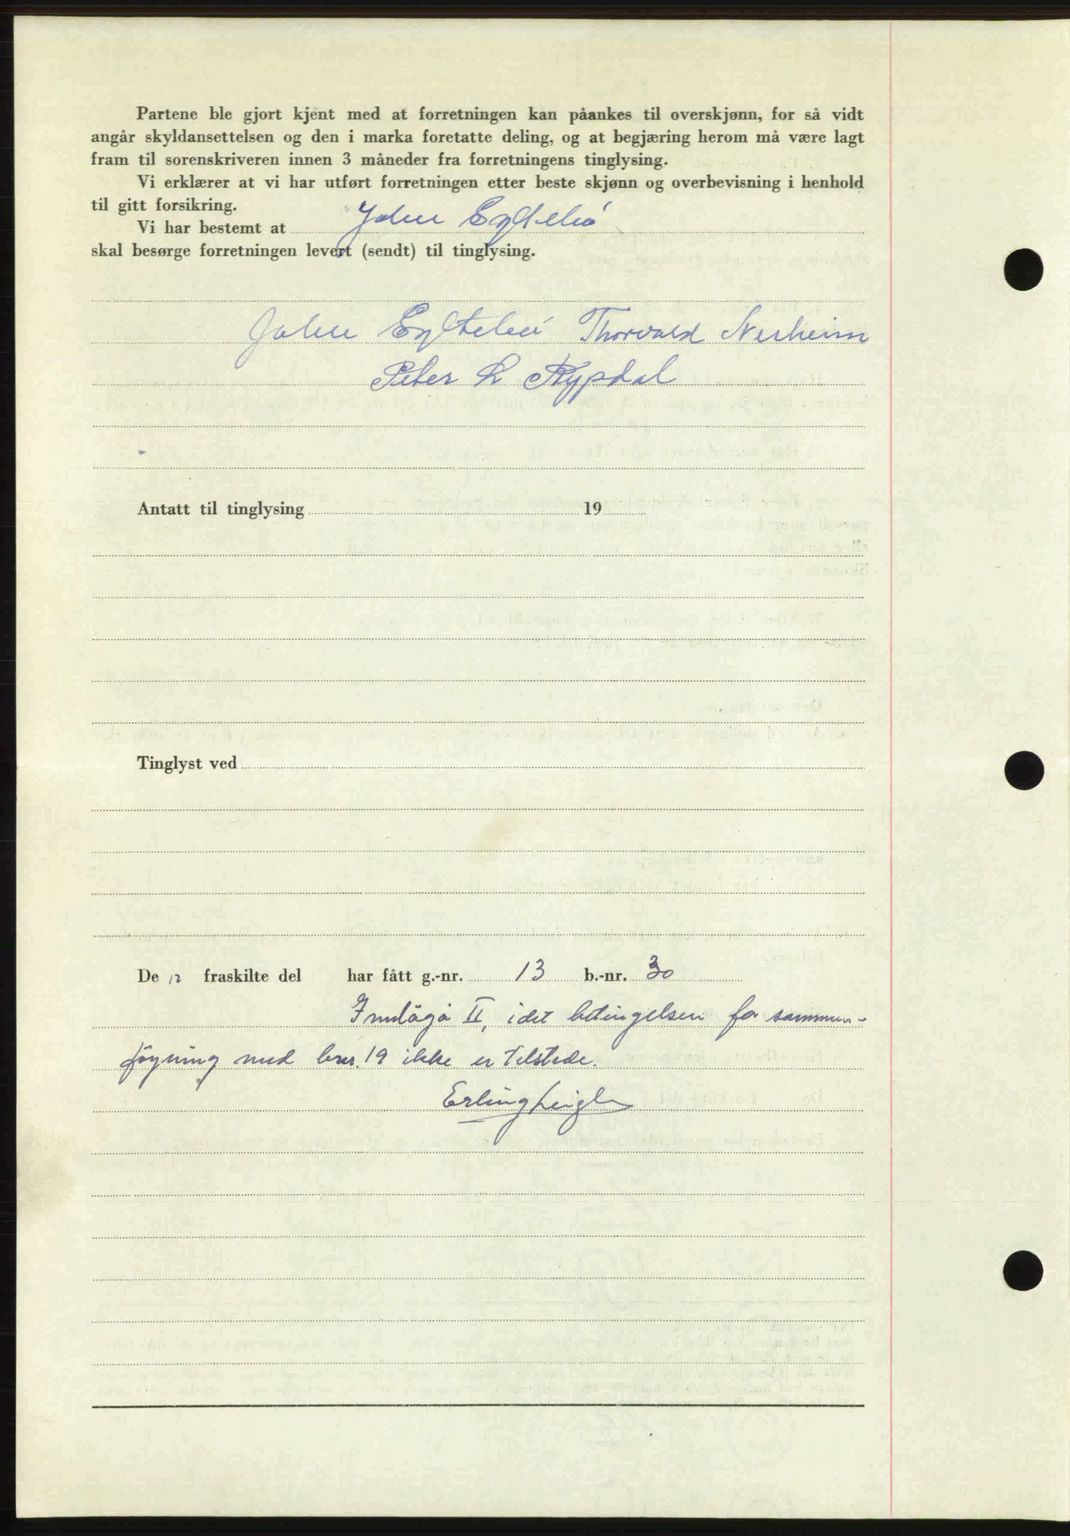 Partene ble gjort kjent med at forretningen kan påankes til overskjønn, for så vidt
angår skyldansettelsen og den i marka foretatte deling, og at begjæring herom må være lagt
fram til sorenskriveren innen 3 måneder fra forretningens tinglysing.
Vi erklærer at vi har utført forretningen etter beste skjønn og overbevisning i henhold
til gitt forsikring.
Vi har bestemt at
skal besørge forretningen levert (sendt) til tinglysing.
Thorvald Nerheim
Peter L Rypdal
Antatt til tinglysing 19
Tinglyst ved
De n fraskilte del har fått g.-nr. 13 b.-nr. 30
II, idet betingelsen for sammen-
föyning med bnr. 19 ikke er tilstede.
Erling